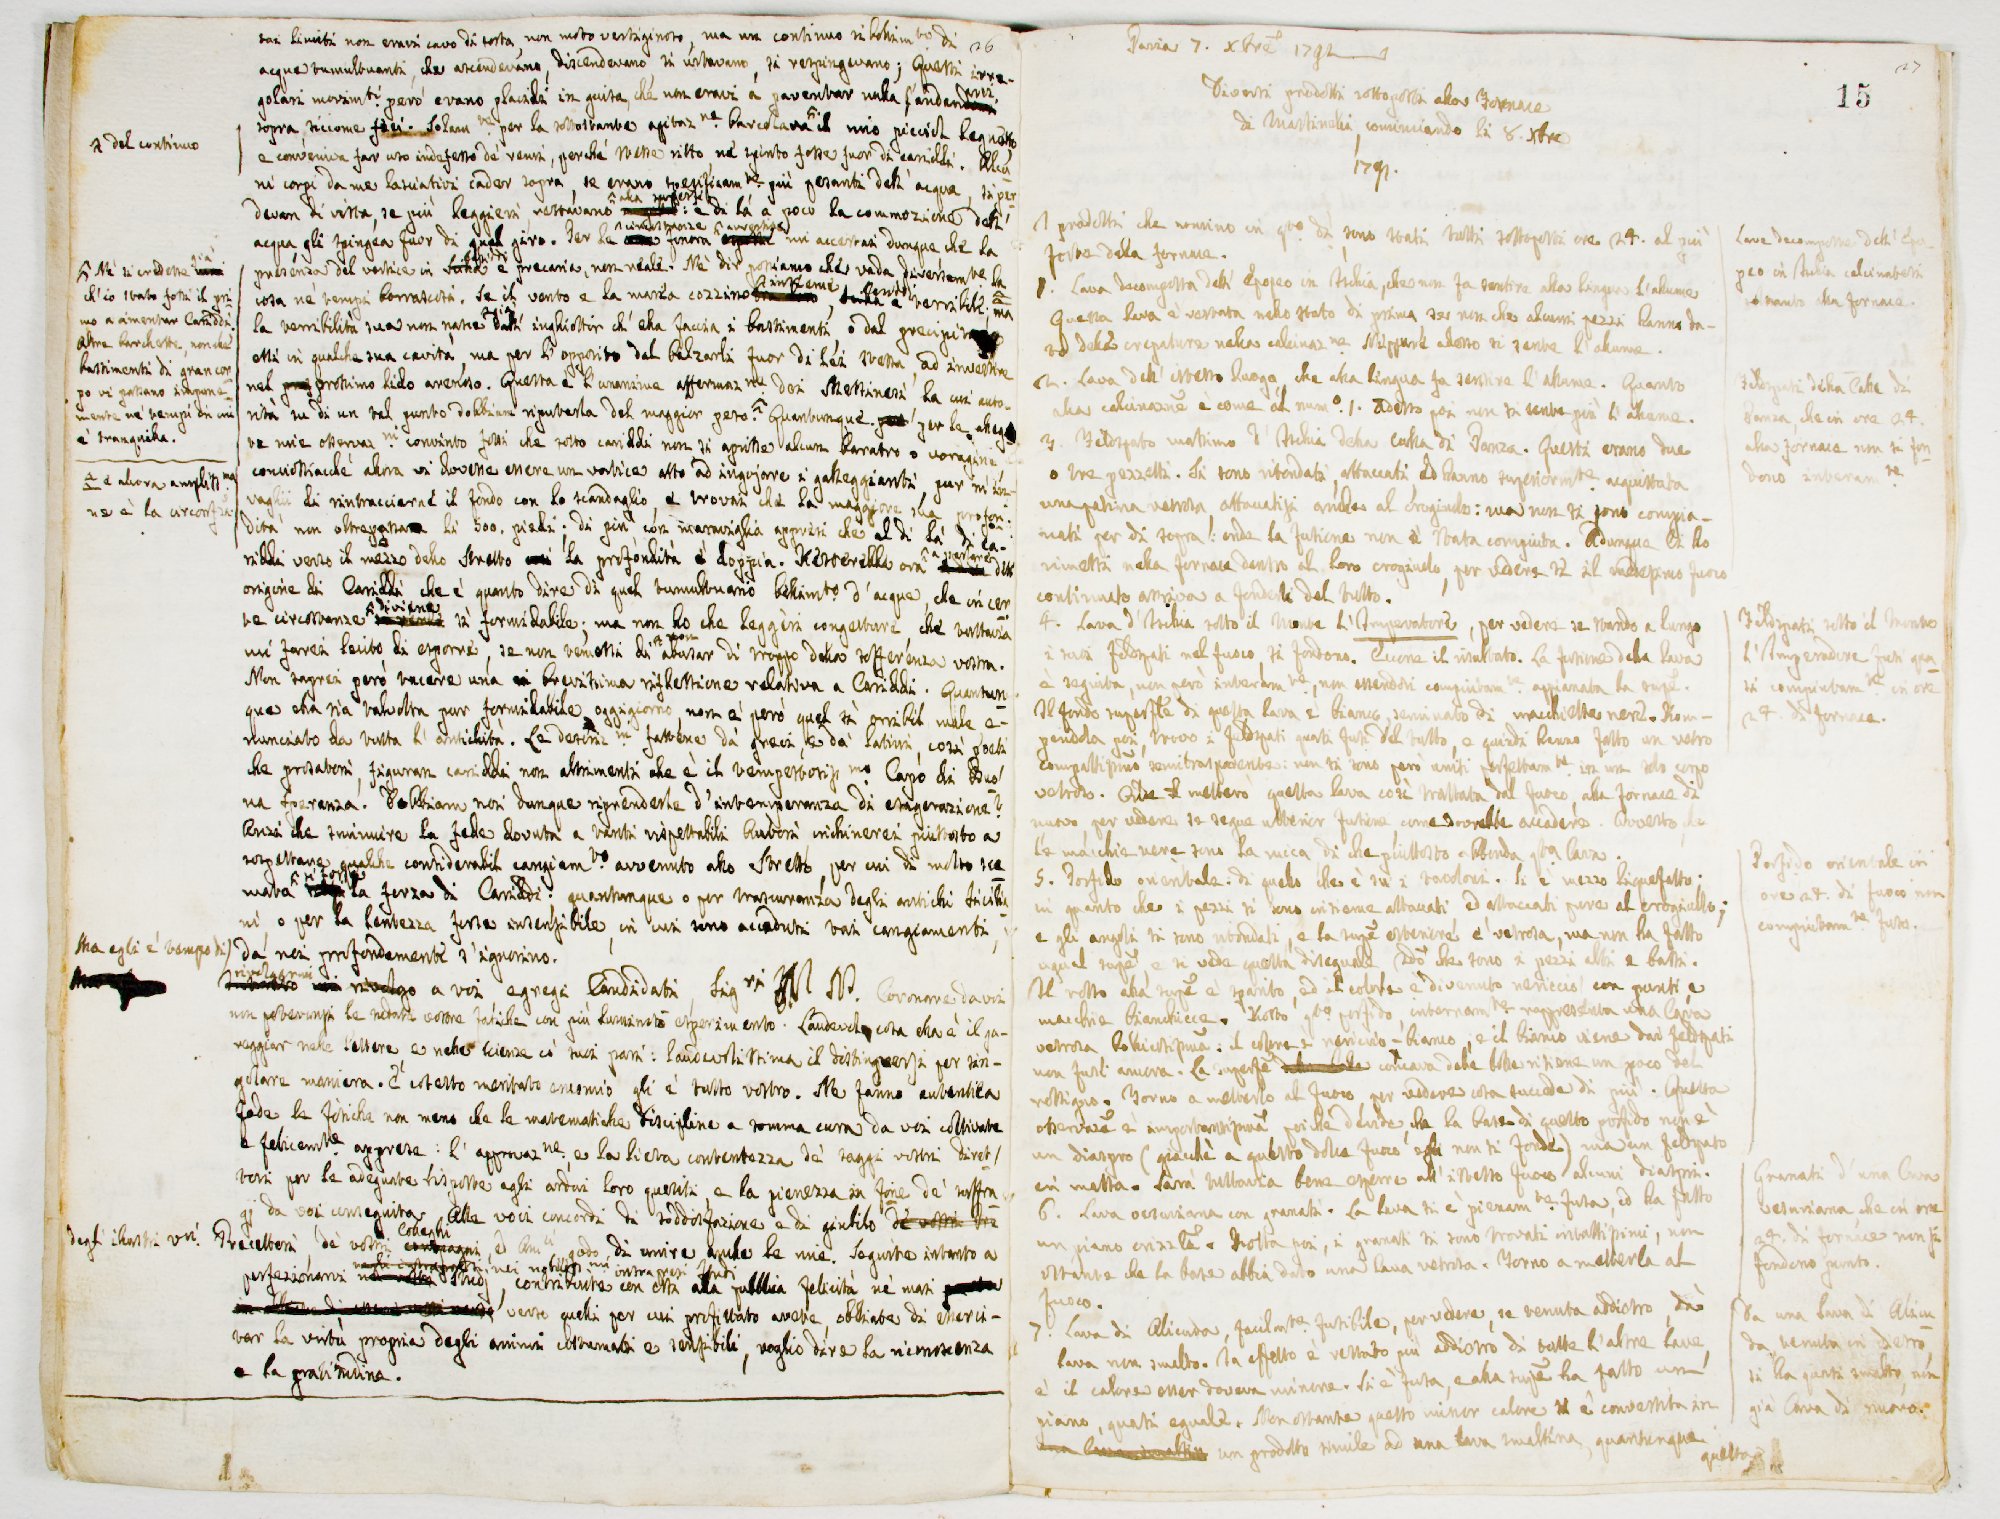 26
suoi limiti non eravi cavo di sorta, non moto vertiginoso, ma un continuo ribollim.to di
acque tumultuanti, che ascendevano, discendevano, si urtavano, si respingevano; Questi irre-
golari movim.ti però erano placidi in guisa, che non eravi a paventar nulla l'andarvi
sopra, siccome feci. Solam.te per la sottostante agitaz.ne barcollava il mio piccolo legnetto
e conveniva far uso indefesso de' remi, perché stesse ritto, né spinto fosse fuor di cariddi. Alcu-
ni corpi da me lasciativi cader sopra, se erano specificam.te più pesanti dell' acqua, si per-
devan di vista, se più leggieri, restavano alla superficie: e di là a poco la commozione dell'
acqua gli spingea fuor di quel giro. Per le circostanze finora mi accertai dunque che la
presenza del vortice in Cariddi è precaria, non reale. Né dir possiamo che vada diversam.te la
cosa ne' tempi burrascosi. Se il vento e la marea cozzino insieme, Cariddi è terribile: ma
la terribilità sua non nasce già dall' inghiottir ch' ella faccia i bastimenti, o dal precipitar
essi in qualche sua cavità, ma per l' opposito dal balzarli fuor di lei stessa, ad investire
nel prossimo lido arenoso. Questa è l' unanime affermaz.ne dei Messinesi, la cui auto-
rità su di un tal punto dobbiam riputarla del maggior peso. Quantunque per le alleg-
te mie osservaz.ni convinto fossi che sotto cariddi non si aprisse alcun baratro o voragine
conciossiaché allora vi dovesse essere un vortice atto ad ingojare i galleggianti, pur m' in-
vaglii di rintracciarne il fondo con lo scandaglio, e trovai che la maggiore sua profon-
dità non oltrepassava li 500. piedi; di più con maraviglia appresi che al di là di ca-
riddi verso il mezzo dello Stretto la profondità è doppia. Resterebbe ora a parlare dell'
origine di Cariddi, che è quanto dire di quel tumultuario bollim.to d' acque, che in cer-
te circostanze diviene sì formidabile; ma non ho che leggeri congetture, che tuttavia
mi farei lecito di esporre, se non temessi di abusar di troppo della sofferenza vostra.
Non saprei però tacere una brevissima riflessione relativa a Cariddi. Quantun-
que ella sia talvolta pur formidabile, oggigiorno, non è però quel sì orribil male e-
nunciato da tutta l' antichità. Le descriz.ni fattene da' greci, e da' latini, così poeti
che prosatori, figuran cariddi non altrimenti che è il tempestosiss.mo Capo di Buo-
na speranza. Dobbiam noi dunque riprenderle d' intemperanza di esagerazione?
Anzi che sminuire la fede dovuta a tanti rispettabili Autori inchinerei piuttosto a
sospettare qualche considerabil cangiam.to avvenuto allo Stretto, per cui di molto sce-
mata si fosse la forza di Cariddi: quantunque o per trascuranza degli antichi Sicilia-
ni o per la lentezza forse insensibile, in cui sono accaduti tai cangiamenti,
da noi profondamente s' ignorino.
rivolgermi a voi egregi Candidati, Sig.ri M M. Coronare da voi
non potevansi le nostre vostre fatiche con più luminoso esperimento. Laudevol cosa ella è il ga-
reggiar nelle lettere, e nelle scienze co' suoi pari: laudevolissima il distinguersi per sin-
golare maniera. E cotesto meritato encomio gli è tutto vostro. Ne fanno autentica
fede le fisiche non meno che le matematiche discipline a somma cura da voi coltivate
e felicem.te apprese: l' approvaz.ne, e la lieta contentezza de' saggi vostri diret-
tori per le adeguate risposte agli ardui loro quesiti, e la pienezza in fine de' suffra-
gj da voi conseguita. Alle voci concordi di soddisfazione e di giubilo
Precettori, de' vostri Colleghi, ed Am.ci godo di unire anche le mie. Seguite intanto a
perfezionarvi nei nobiliss.mi intrapresi studj, contribuite con essi alla pubblica felicità né mai
verso quelli per cui profittato avete obbliate di eserci-
tar la virtù propria degli animi costumati e sensibili, voglio dire la riconoscenza
e la gratitudine.
si del continuo
Né si credesse già
ch' io stato fossi il pri-
mo a cimentar Cariddi.
Altre barchette, nonché
bastimenti di gran cor-
po vi passano impune-
mente ne' tempi in cui
è tranquilla.
e allora ampliss.ma
ne è la circonf.za
Ma egli è tempo di
degli illustri v.ri
27
15
Pavia 7. Xbre 1791
Diversi prodotti sottoposti alla Fornace
di Martinelli, cominciando li 8. Xbre
1791.
I prodotti che nomino in q.to dì, sono stati tutti sottoposti ore 24. al più
forte della fornace.
1. Lava decomposta dell' Epopeo in Ischia, che non fa sentire alla lingua l'alume
Questa lava è restata nello stato di prima se non che alcuni pezzi hanno da-
to delle crepature nella calcinaz.ne. Neppure adesso si sente l' alume.
2. Lava dell' istesso luogo, che alla lingua fa sentire l' alume. Quanto
alla calcinazne è come al num.o 1. Adesso poi non si sente più l' alume.
3. Feldspato massimo d' Ischia della Calla di Panza. Questi erano due
o tre pezzetti. Si sono ritondati, attaccati ed hanno superiorm.te acquistata
una patina vetrosa attaccatisi anche al crogiuolo: ma non si sono compia-
nati per di sopra: onde la fusione non è stata compiuta. Adunque li ho
rimessi nella fornace dentro al loro crogiuolo, per vedere se il medesimo fuoco
continuato arriva a fonderli del tutto.
4. Lava d' Ischia sotto il Monte L'Imperatore, per vedere se stando a lungo
i suoi feldspati nel fuoco, si fondono. Eccone il risultato. La fusione della lava
è seguita, non però interam.te, non essendosi compiutam.te appianata la supe.
Il fondo superfle di questa lava è bianco, seminato di macchiette nere. Rom-
pendola poi, trovo i feldspati quasi fusi del tutto, e quindi hanno fatto un vetro
compattissimo semitrasparente: non si sono però uniti perfettam.te in un solo corpo
vetroso. metterò questa lava così trattata dal fuoco, alla fornace di
nuovo per vedere se segue ulterior fusione come dovrebbe accadere. Avverto, che
le macchie nere sono la mica di che piuttosto abbonda q.ta lava.
5. Porfido orientale di quello che è su i tavolozzi. Si è mezzo liquefatto.
in quanto che i pezzi si sono insieme attaccati ed attaccati pure al crogiuolo;
e gli angoli si sono ritondati, e la supe esteriore è vetrosa, ma non ha fatto
ugual supe, e si vede questa diseguale secondo che sono i pezzi alti e bassi.
Il rosso alla supe è sparito, ed il colore è divenuto nericcio con punti, e
macchie bianchicce. Rotto q.to porfido internam.te rappresenta una lava
vetrosa bollicosissima: il colore è nericcio-bianco, e il bianco viene dai feldspati
non fusi ancora. La superfe concava delle bolle ritiene un poco del
rossigno. Torno a metterlo al fuoco per vedere cosa succede di più. Questa
osservazne è importantissima poiché decide, che la base di questo porfido non è
un diaspro (giacché a questo dolce fuoco egli non si fonde) ma un feldspato
in massa. Sarà tuttavia bene esporre all' istesso fuoco alcuni diaspri.
6. Lava vesuviana con granati. La lava si è pienam.te fusa, ed ha fatto
un piano orizzle. Rotta poi, i granati si sono trovati intattissimi, non
ostante che la base abbia dato una lava vetrosa. Torno a metterla al
fuoco.
7. Lava di Alicuda, facilm.te fusibile, per vedere, se tenuta addietro, dà
lava non smalto. In effetto è restato più addietro di tutte l' altre lave,
e il calore esser doveva minore. Si è fusa, e alla supe ha fatto un
piano, quasi eguale. Non ostante questo minor calore si è convertita in
una lava smaltina un prodotto simile ad una lava smaltina, quantunque
questa
Lave decomposte dell' Epo-
peo in Ischia calcinatesi
soltanto alla fornace.
Feldspati della Calle di
Panza, che in ore 24.
alla fornace non si fon-
dono interam.te
Feldspati sotto il Monte
L'Imperadore fusi qua-
si compiutam.te in ore
24. di fornace.
Porfido orientale in
ore 24. di fuoco non
compiutam.te fuso.
Granati d' una lava
vesuviana che in ore
24. di fornace non si
fondono punto.
Da una lava di Alicu-
da, tenuta in dietro
si ha quasi smalto, non
già lava di nuovo.